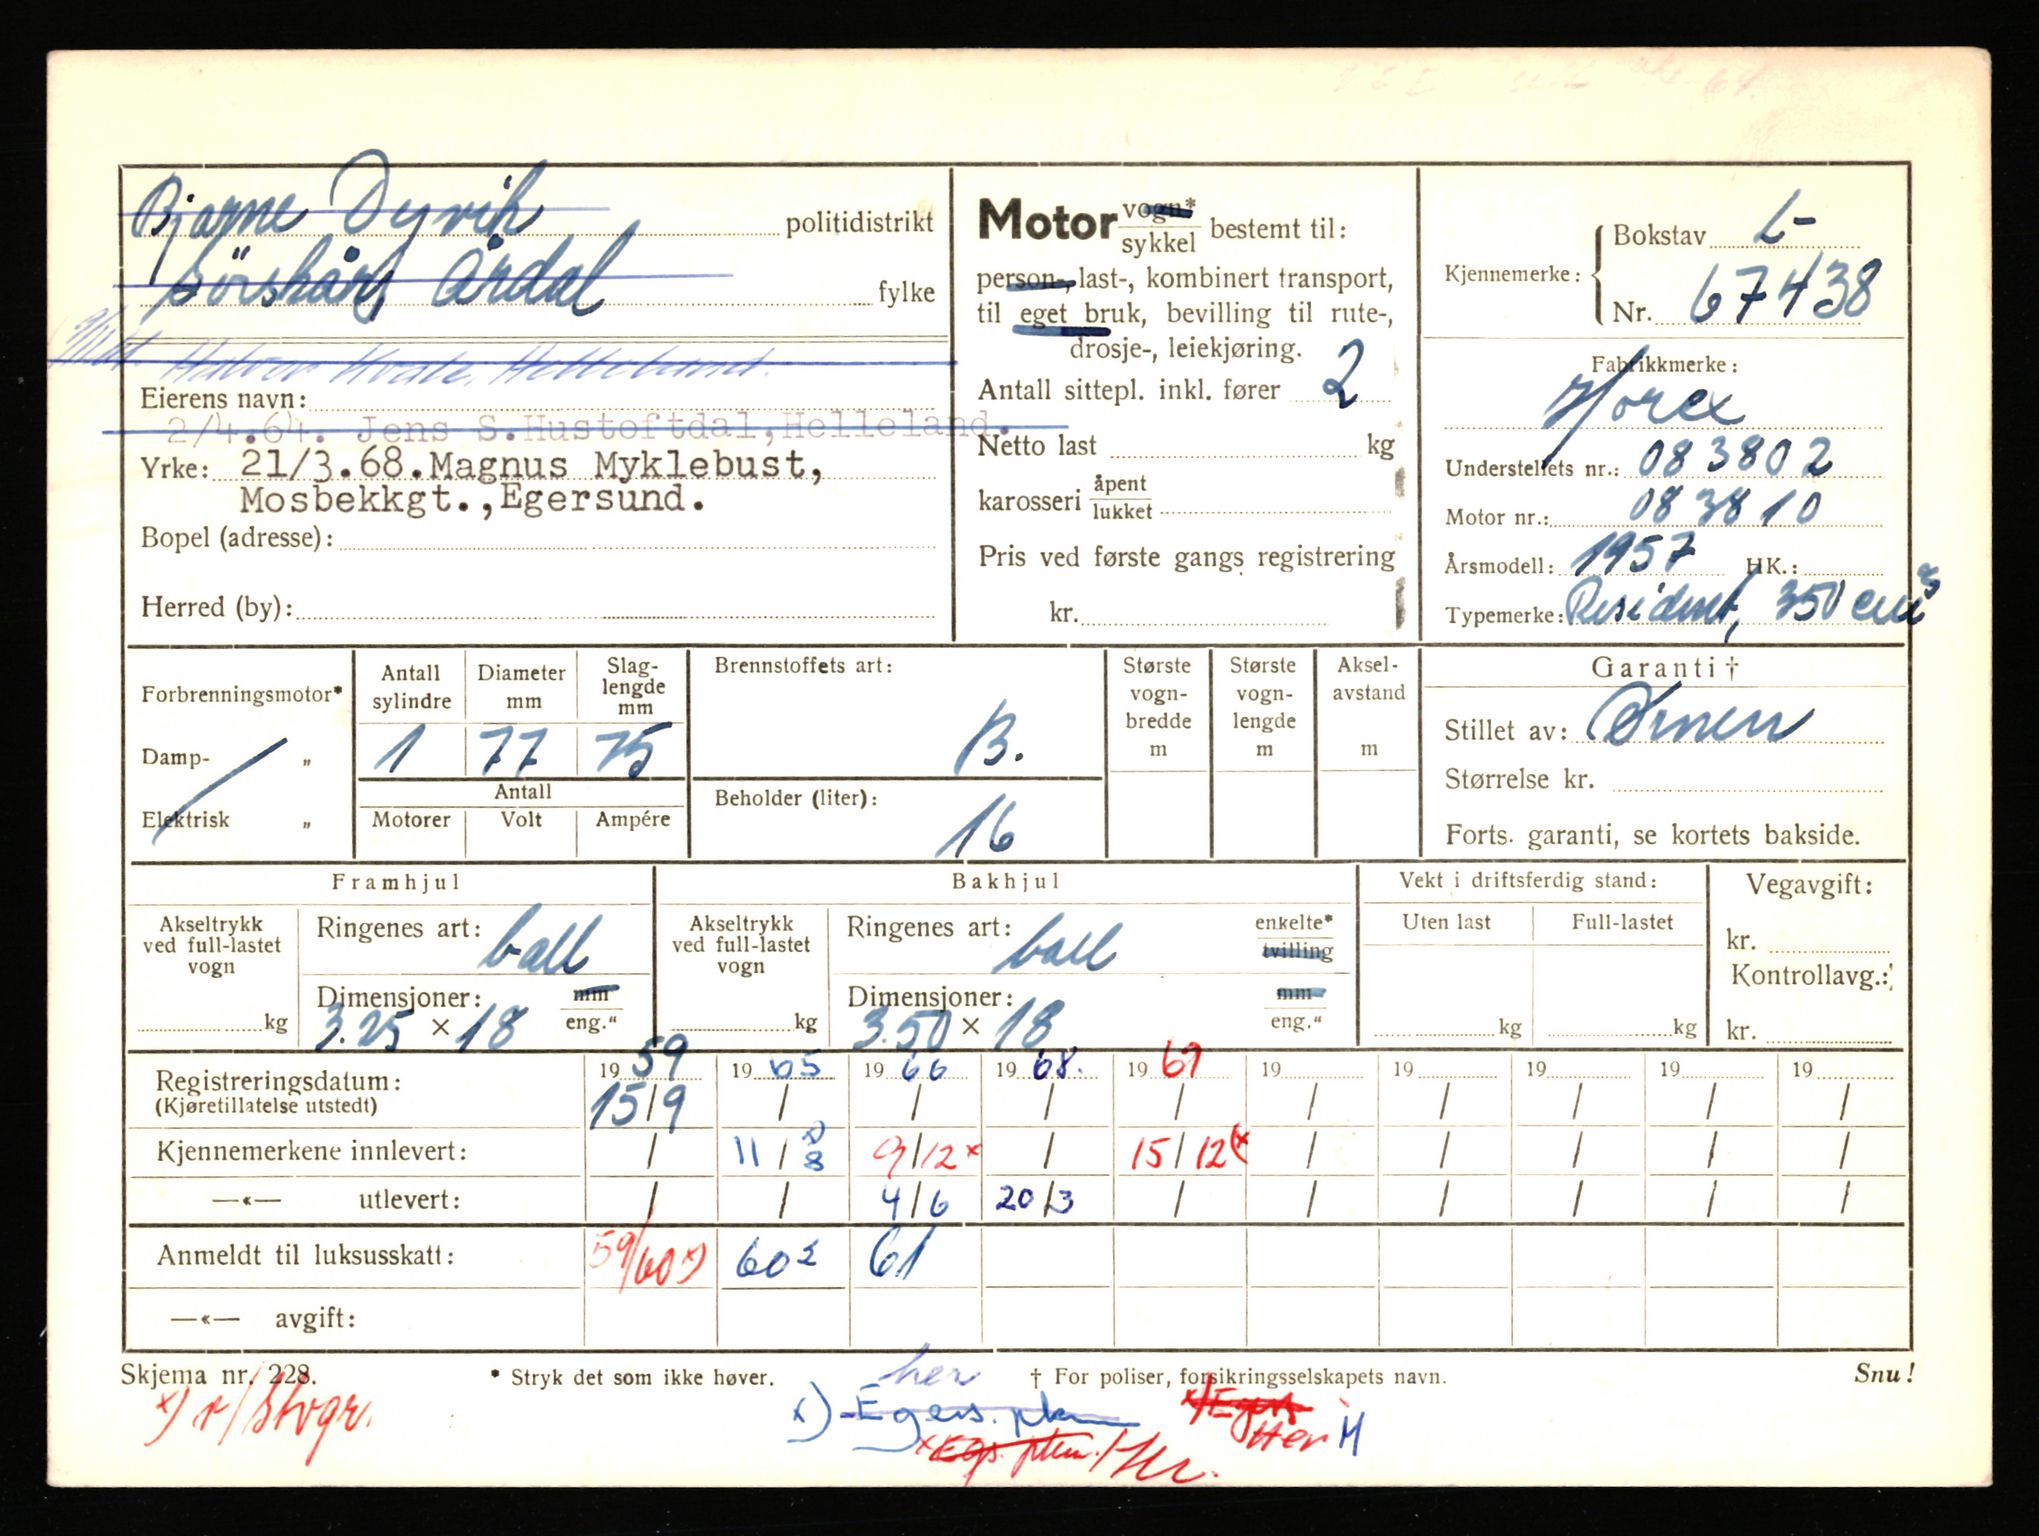 Bjarne Dyrvik
politidistrikt
Årdal
fylke
Helleland.
Eierens navn:
2/4.64. Jens S.Hustoftdal,Helleland.
Yrke: 21/3.68.Magnus Myklebust,
Mosbekkgt.,Egersund.
Bopel (adresse):
Herred (by):
Motor vogn*
sykkel bestemt til:
person-, last-, kombinert transport,
til eget bruk, bevilling til rute-,
drosje-, leiekjøring.
Antall sittepl. inkl. fører 2
Netto last kg
karosseri åpent
lukket
Pris ved første gangs registrering
kr.
Kjennemerke: Bokstav L-
Nr. 67438
Fabrikkmerke:
Horex
Understellets nr.: 083802
Motor nr.: 083810
Årsmodell: 1957 HK.:
Typemerke: Resident, 350 cm3
Forbrenningsmotor*
Damp- „
Elektrisk „
Antall sylindre
Diameter mm
Slag-
lengde
mm
1 77 75
Antall
Motorer Volt Ampére
Brennstoffets art:
B.
Beholder (liter):
16
Største
vogn-
bredde
m
Største
vogn-
lengde
m
Aksel-
avstand
m
Garanti †
Stillet av: Ørnen
Størrelse kr.
Forts. garanti, se kortets bakside.
Framhjul
Akseltrykk
ved full-lastet
vogn
kg
Ringenes art: ball
Dimensjoner: mm
3.25 × 18 eng."
Bakhjul
Akseltrykk
ved full-lastet
vogn
kg
Ringenes art: ball
enkelte*
tvilling
Dimensjoner: mm
3.50 × 18 eng."
Vekt i driftsferdig stand:
Uten last Full-lastet
kg kg
Vegavgift:
kr.
Kontrollavg.:
kr.
Registreringsdatum: 1959 1965 1966 1968. 1969 19 19 19 19 19
(Kjøretillatelse utstedt) 15/9 / / / / / / / / /
Kjennemerkene innlevert: / 11/8 x) 9/12 x / 15/12 (x / / / / /
—«— utlevert: / / 4/6 20/3 / / / / / /
Anmeldt til luksusskatt: 59/60 x) 60 61
—«— avgift:
Skjema nr. 228.
* Stryk det som ikke høver.
† For poliser, forsikringsselskapets navn.
Snu!
her
x) v/Stvgr.
x) Egers.
x) Egers
Her M
x Egs.